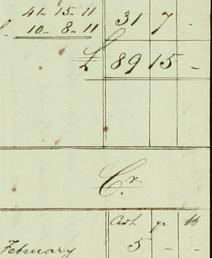 41 - 15 - 11
10 - 8 - 11 31 7 -
£ 89 15 -
Cr.
Cwt qr lb
February 5 - -